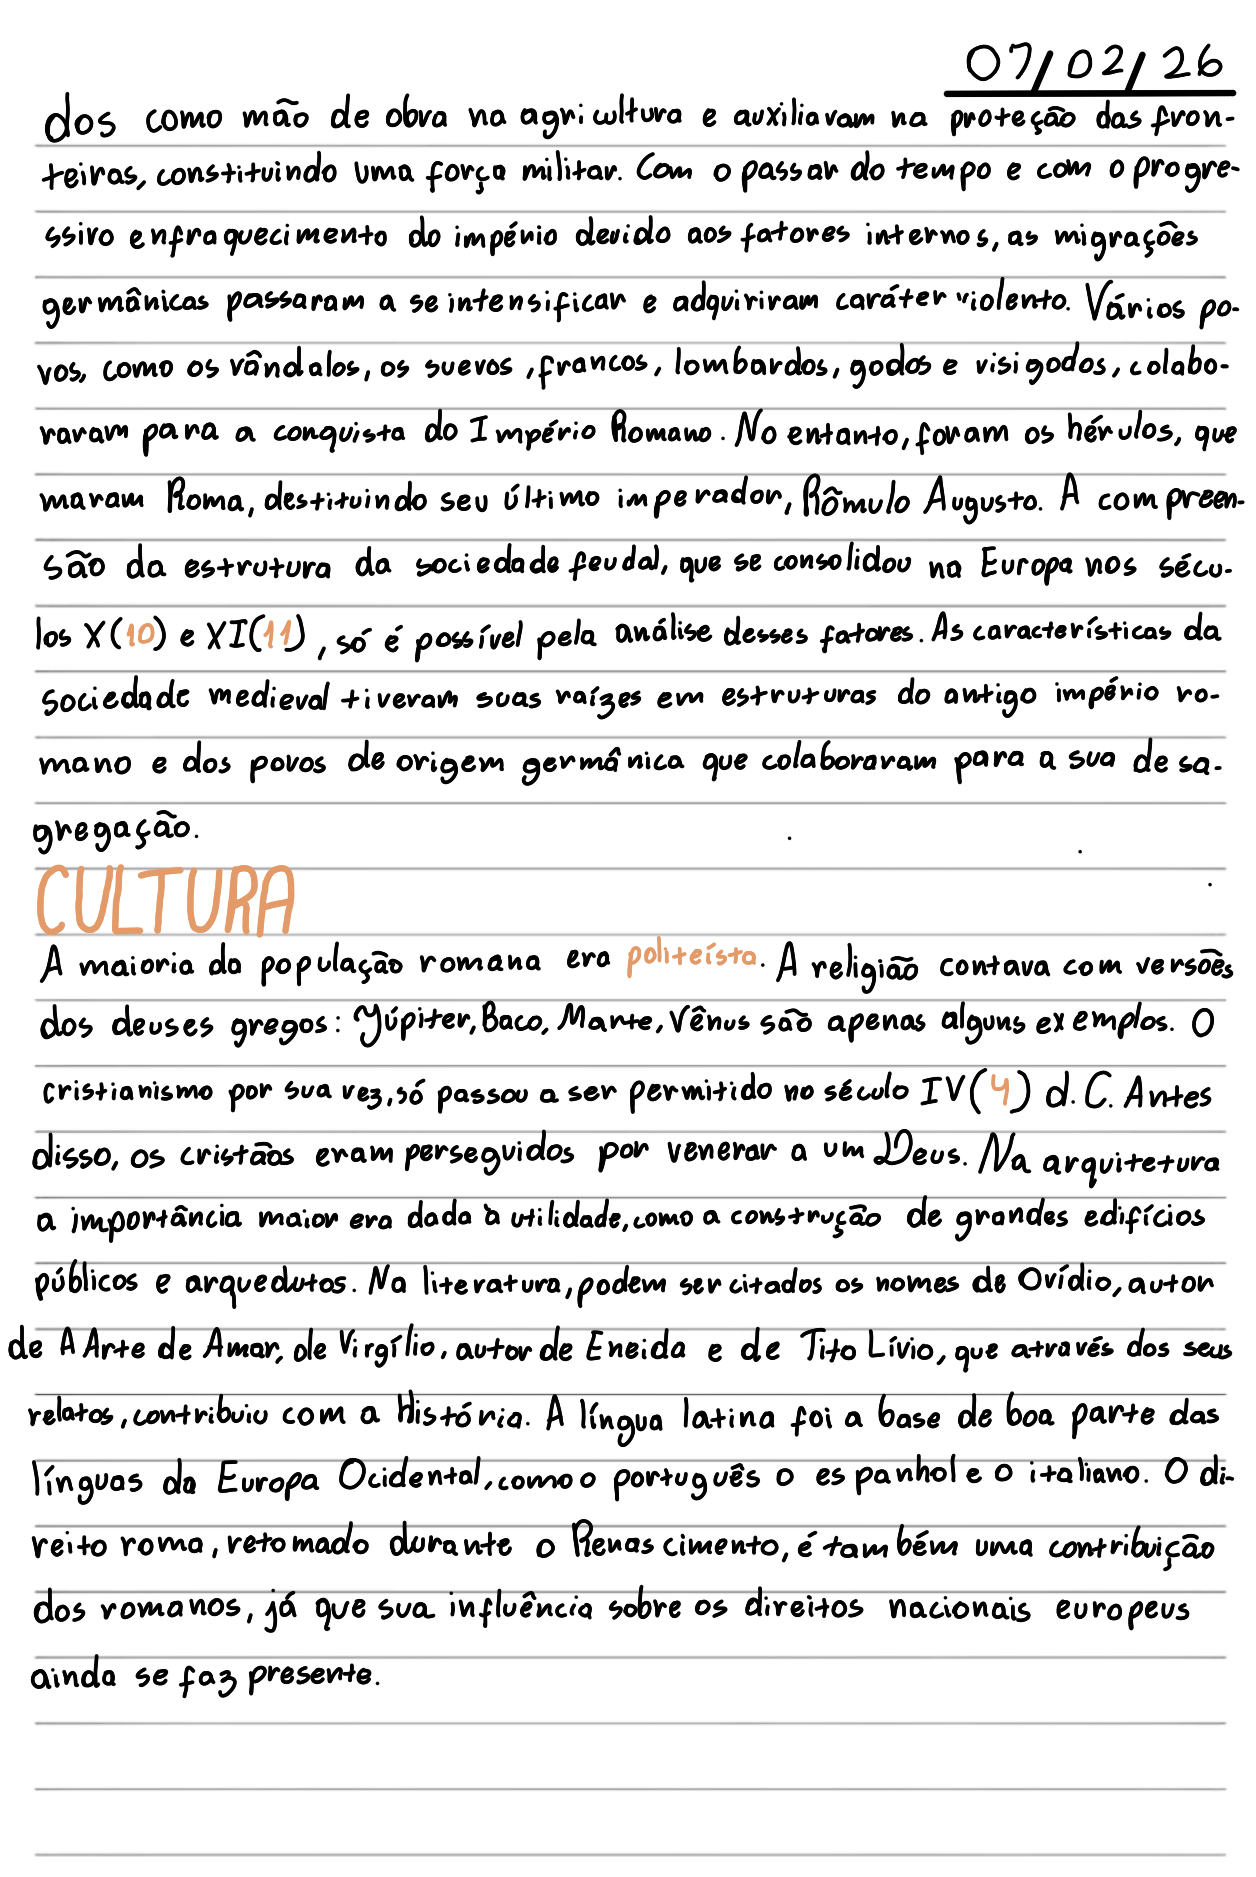 07/02/26
dos como mão de obra na agricultura e auxiliavam na proteção das fron-
teiras, constituindo uma força militar. Com o passar do tempo e com o progre-
ssivo enfraquecimento do império devido aos fatores internos, as migrações
germânicas passaram a se intensificar e adquiriram caráter violento. Vários po-
vos, como os vândalos, os suevos, francos, lombardos, godos e visigodos, colabo-
raram para a conquista do Império Romano. No entanto, foram os hérulos, que
maram Roma, destituindo seu último imperador, Rômulo Augusto. A compreen-
são da estrutura da sociedade feudal, que se consolidou na Europa nos sécu-
los X(10) e XI(11), só é possível pela análise desses fatores. As características da
sociedade medieval tiveram suas raízes em estruturas do antigo império ro-
mano e dos povos de origem germânica que colaboraram para a sua desa-
gregação.
CULTURA
A maioria da população romana era politeísta. A religião contava com versões
dos deuses gregos: Júpiter, Baco, Marte, Vênus são apenas alguns exemplos. O
cristianismo por sua vez, só passou a ser permitido no século IV(4) d.C. Antes
disso, os cristãos eram perseguidos por venerar a um Deus. Na arquitetura
a importância maior era dada à utilidade, como a construção de grandes edifícios
públicos e arquedutos. Na literatura, podem ser citados os nomes de Ovídio, autor
de A Arte de Amar, de Virgílio, autor de Eneida e de Tito Lívio, que através dos seus
relatos, contribuiu com a História. A língua latina foi a base de boa parte das
línguas da Europa Ocidental, como o português o espanhol e o italiano. O di-
reito roma, retomado durante o Renascimento, é também uma contribuição
dos romanos, já que sua influência sobre os direitos nacionais europeus
ainda se faz presente.